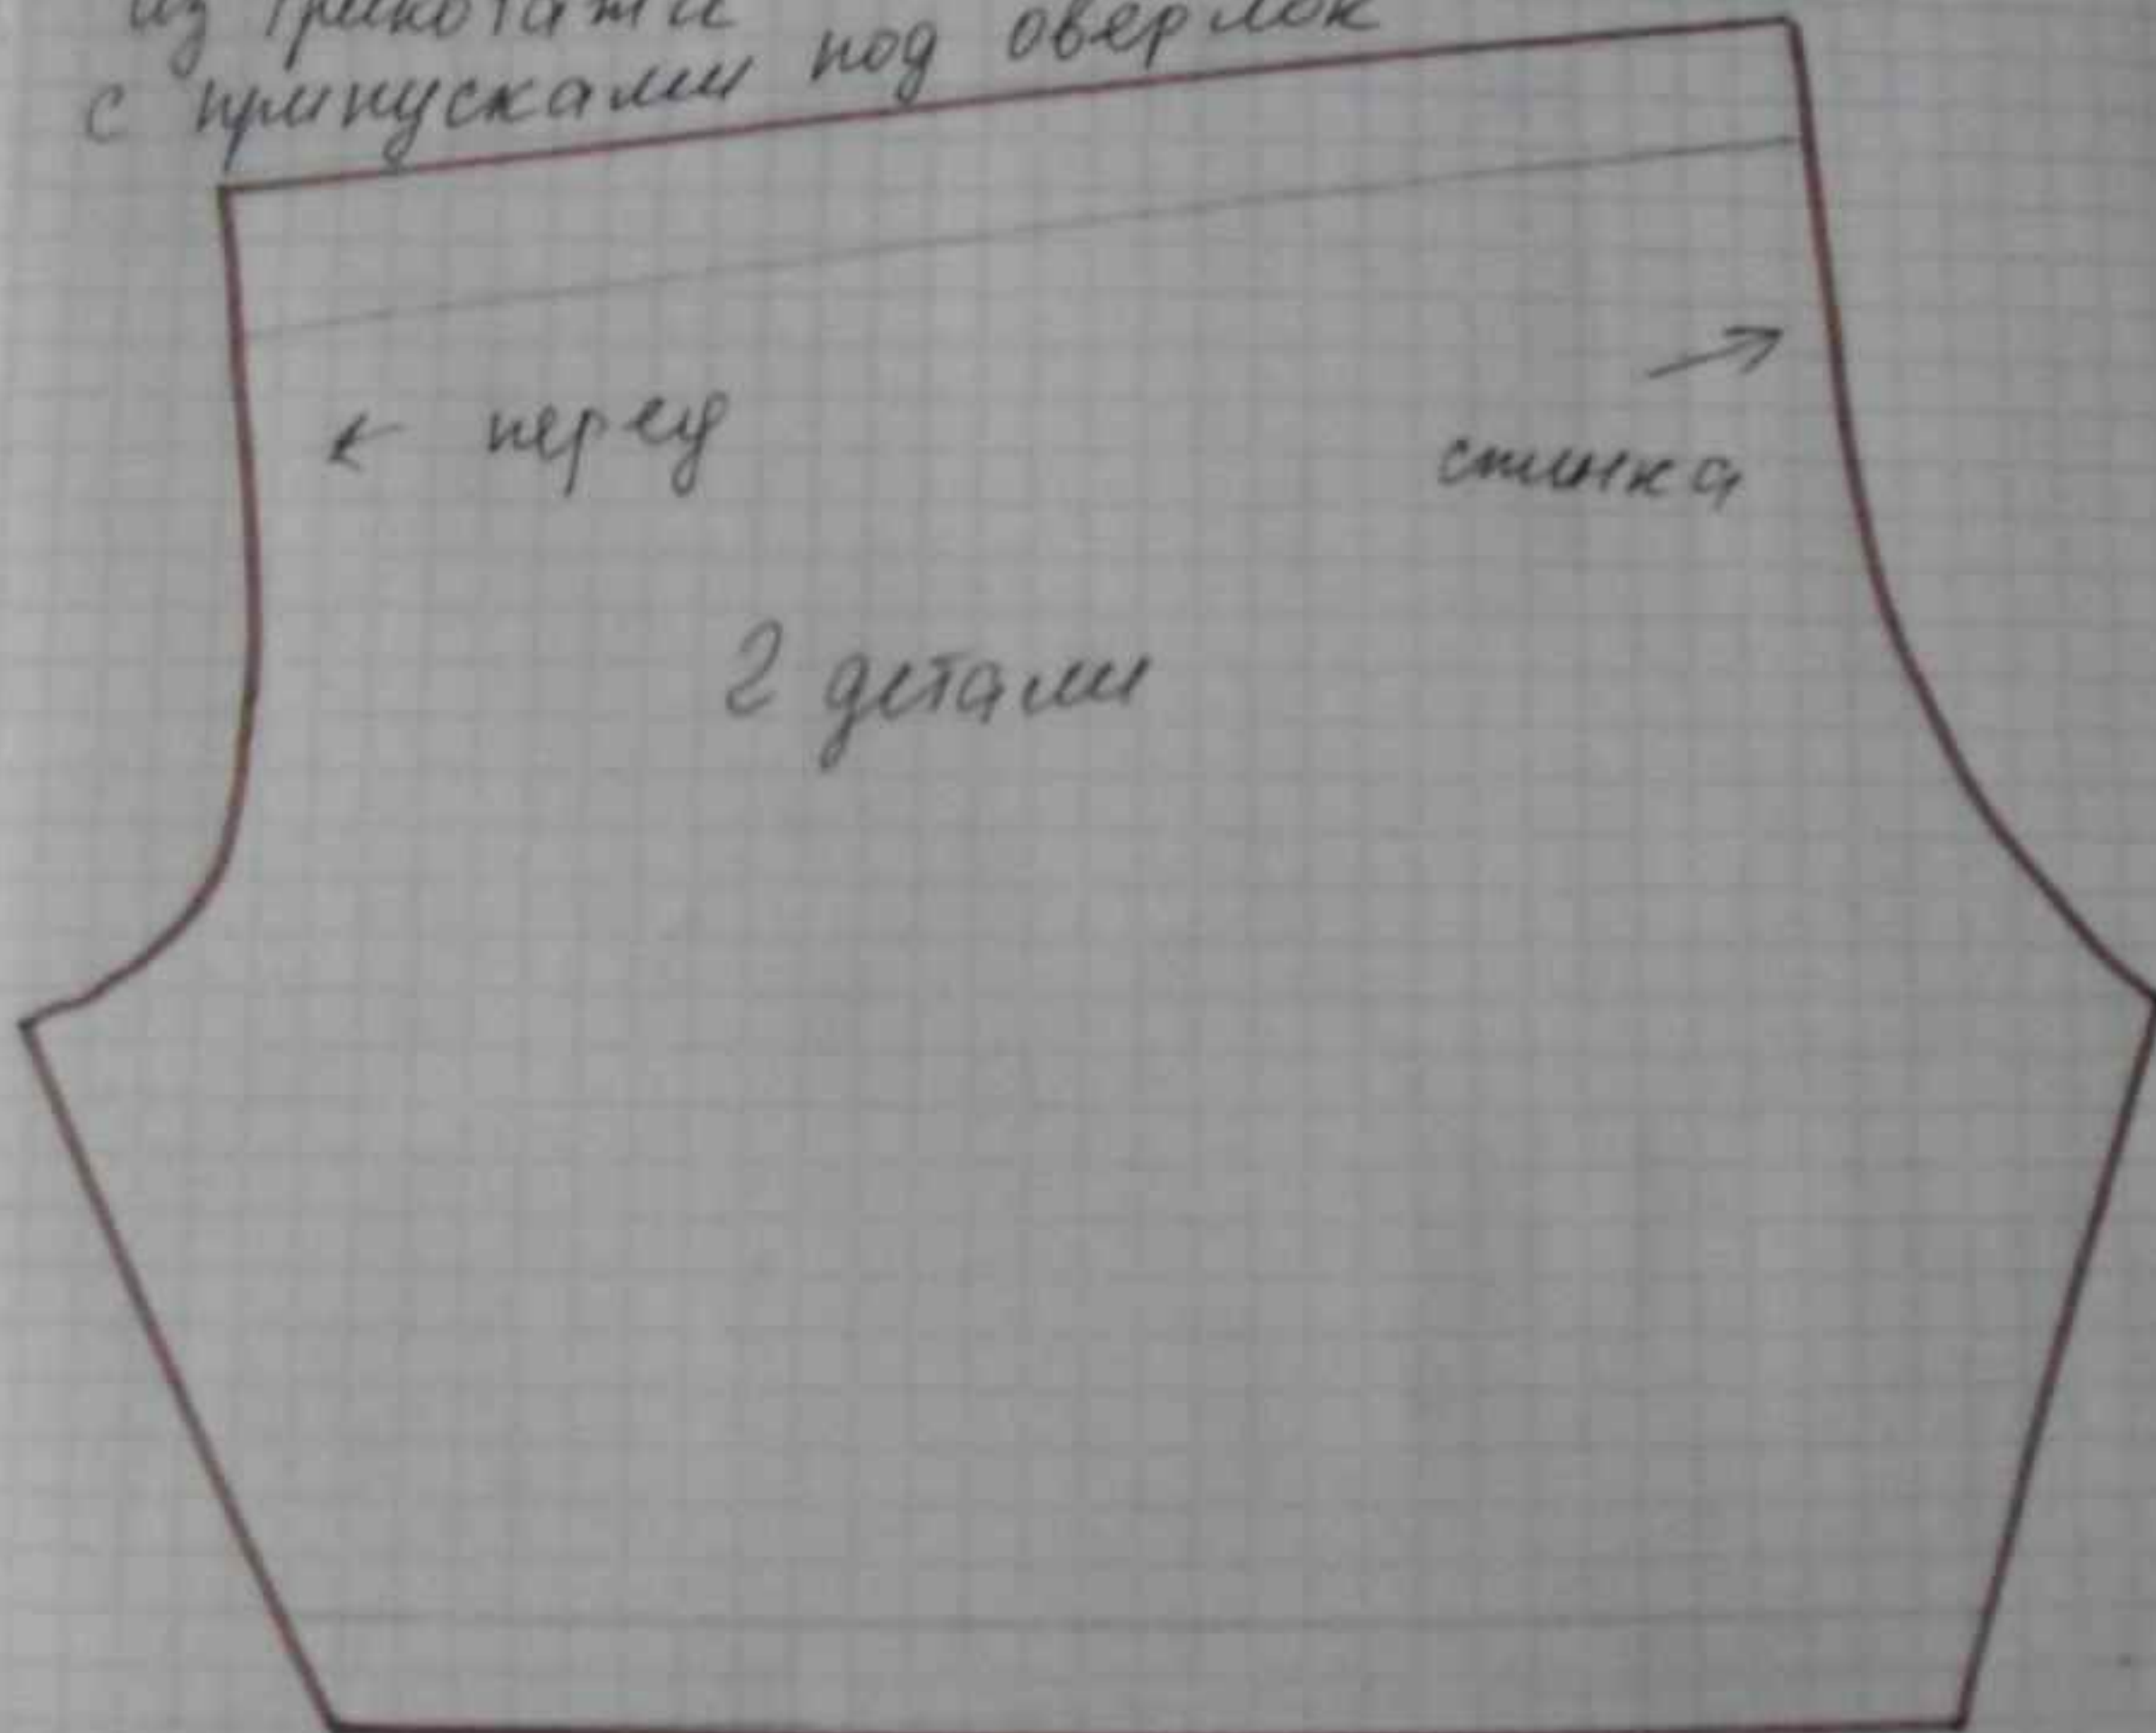 из трикотажа
с припусками под оверлок
← перед
→
спинка
2 детали